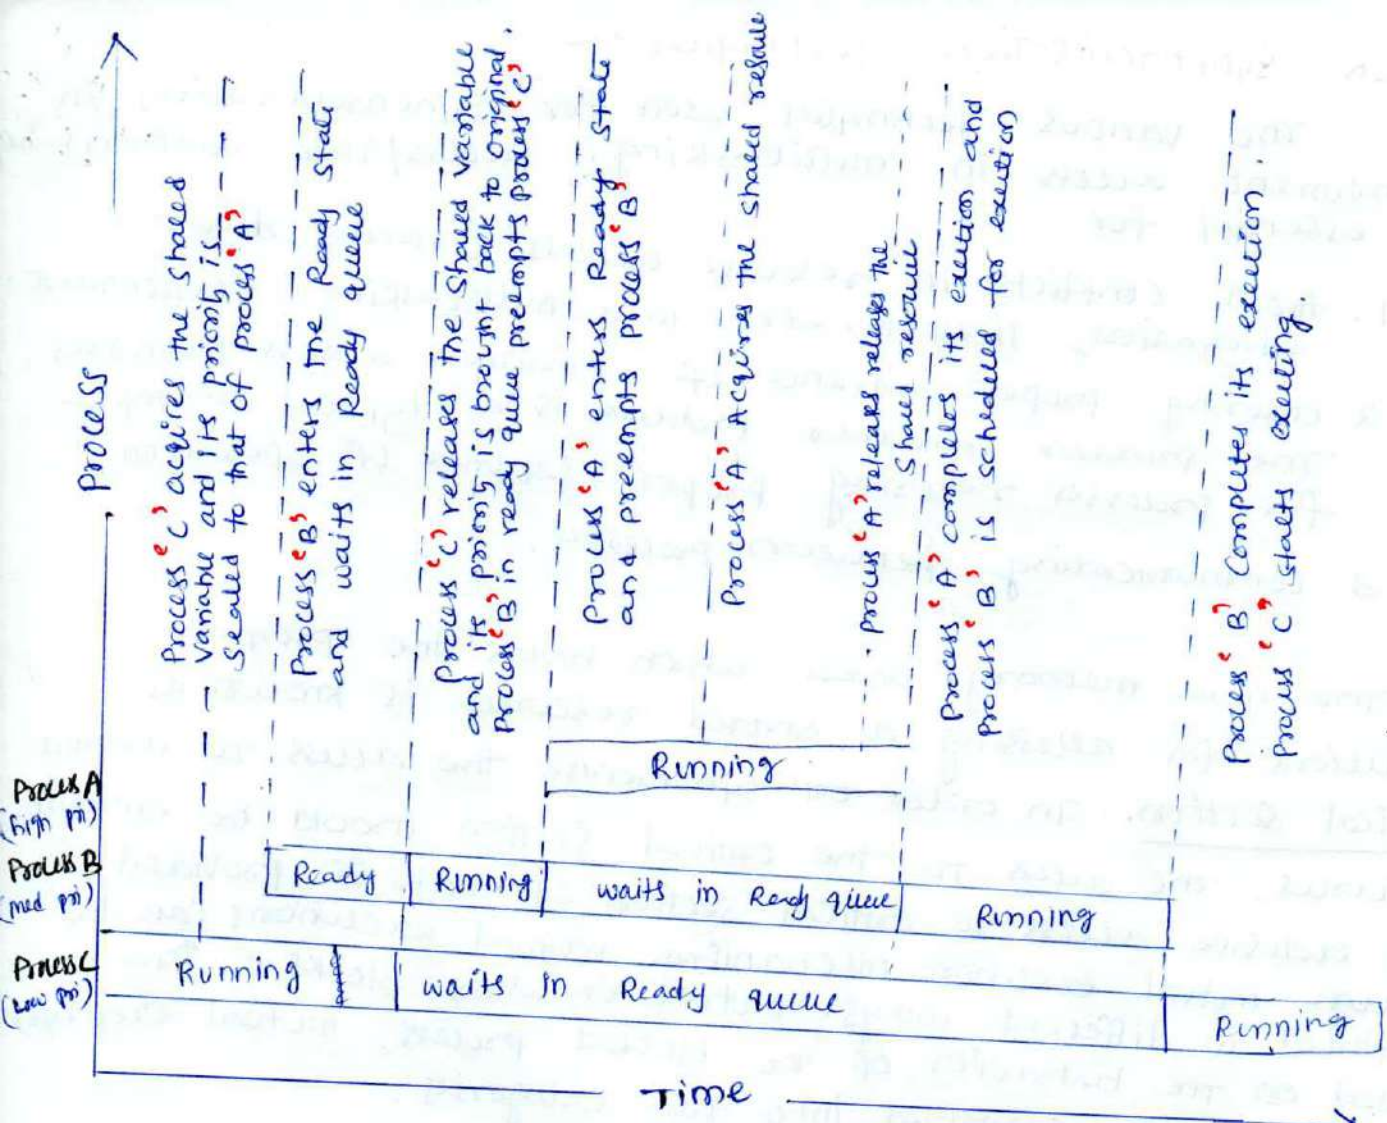 Process
Process 'C' acquires the shared
variable and its priority is
Scaled to that of process 'A'
Process 'B' enters the Ready State
and waits in Ready queue
Process 'C' releases the shared variable
and its priority is brought back to original.
Process 'B' in ready queue preempts process 'C'
Process 'A' enters Ready State
and preempts process 'B'
Process 'A' Acquires the shared resource
Process 'A' releases releases the
Shared resource
Process 'A' completes its execution and
process 'B' is scheduled for execution
Process 'B' Completes its execution.
Process 'C' starts executing
Process A
(high pri)
Running
Process B
(med pri)
Ready
Running
waits in Ready queue
Running
Process C
(Low pri)
Running
waits in Ready queue
Running
Time